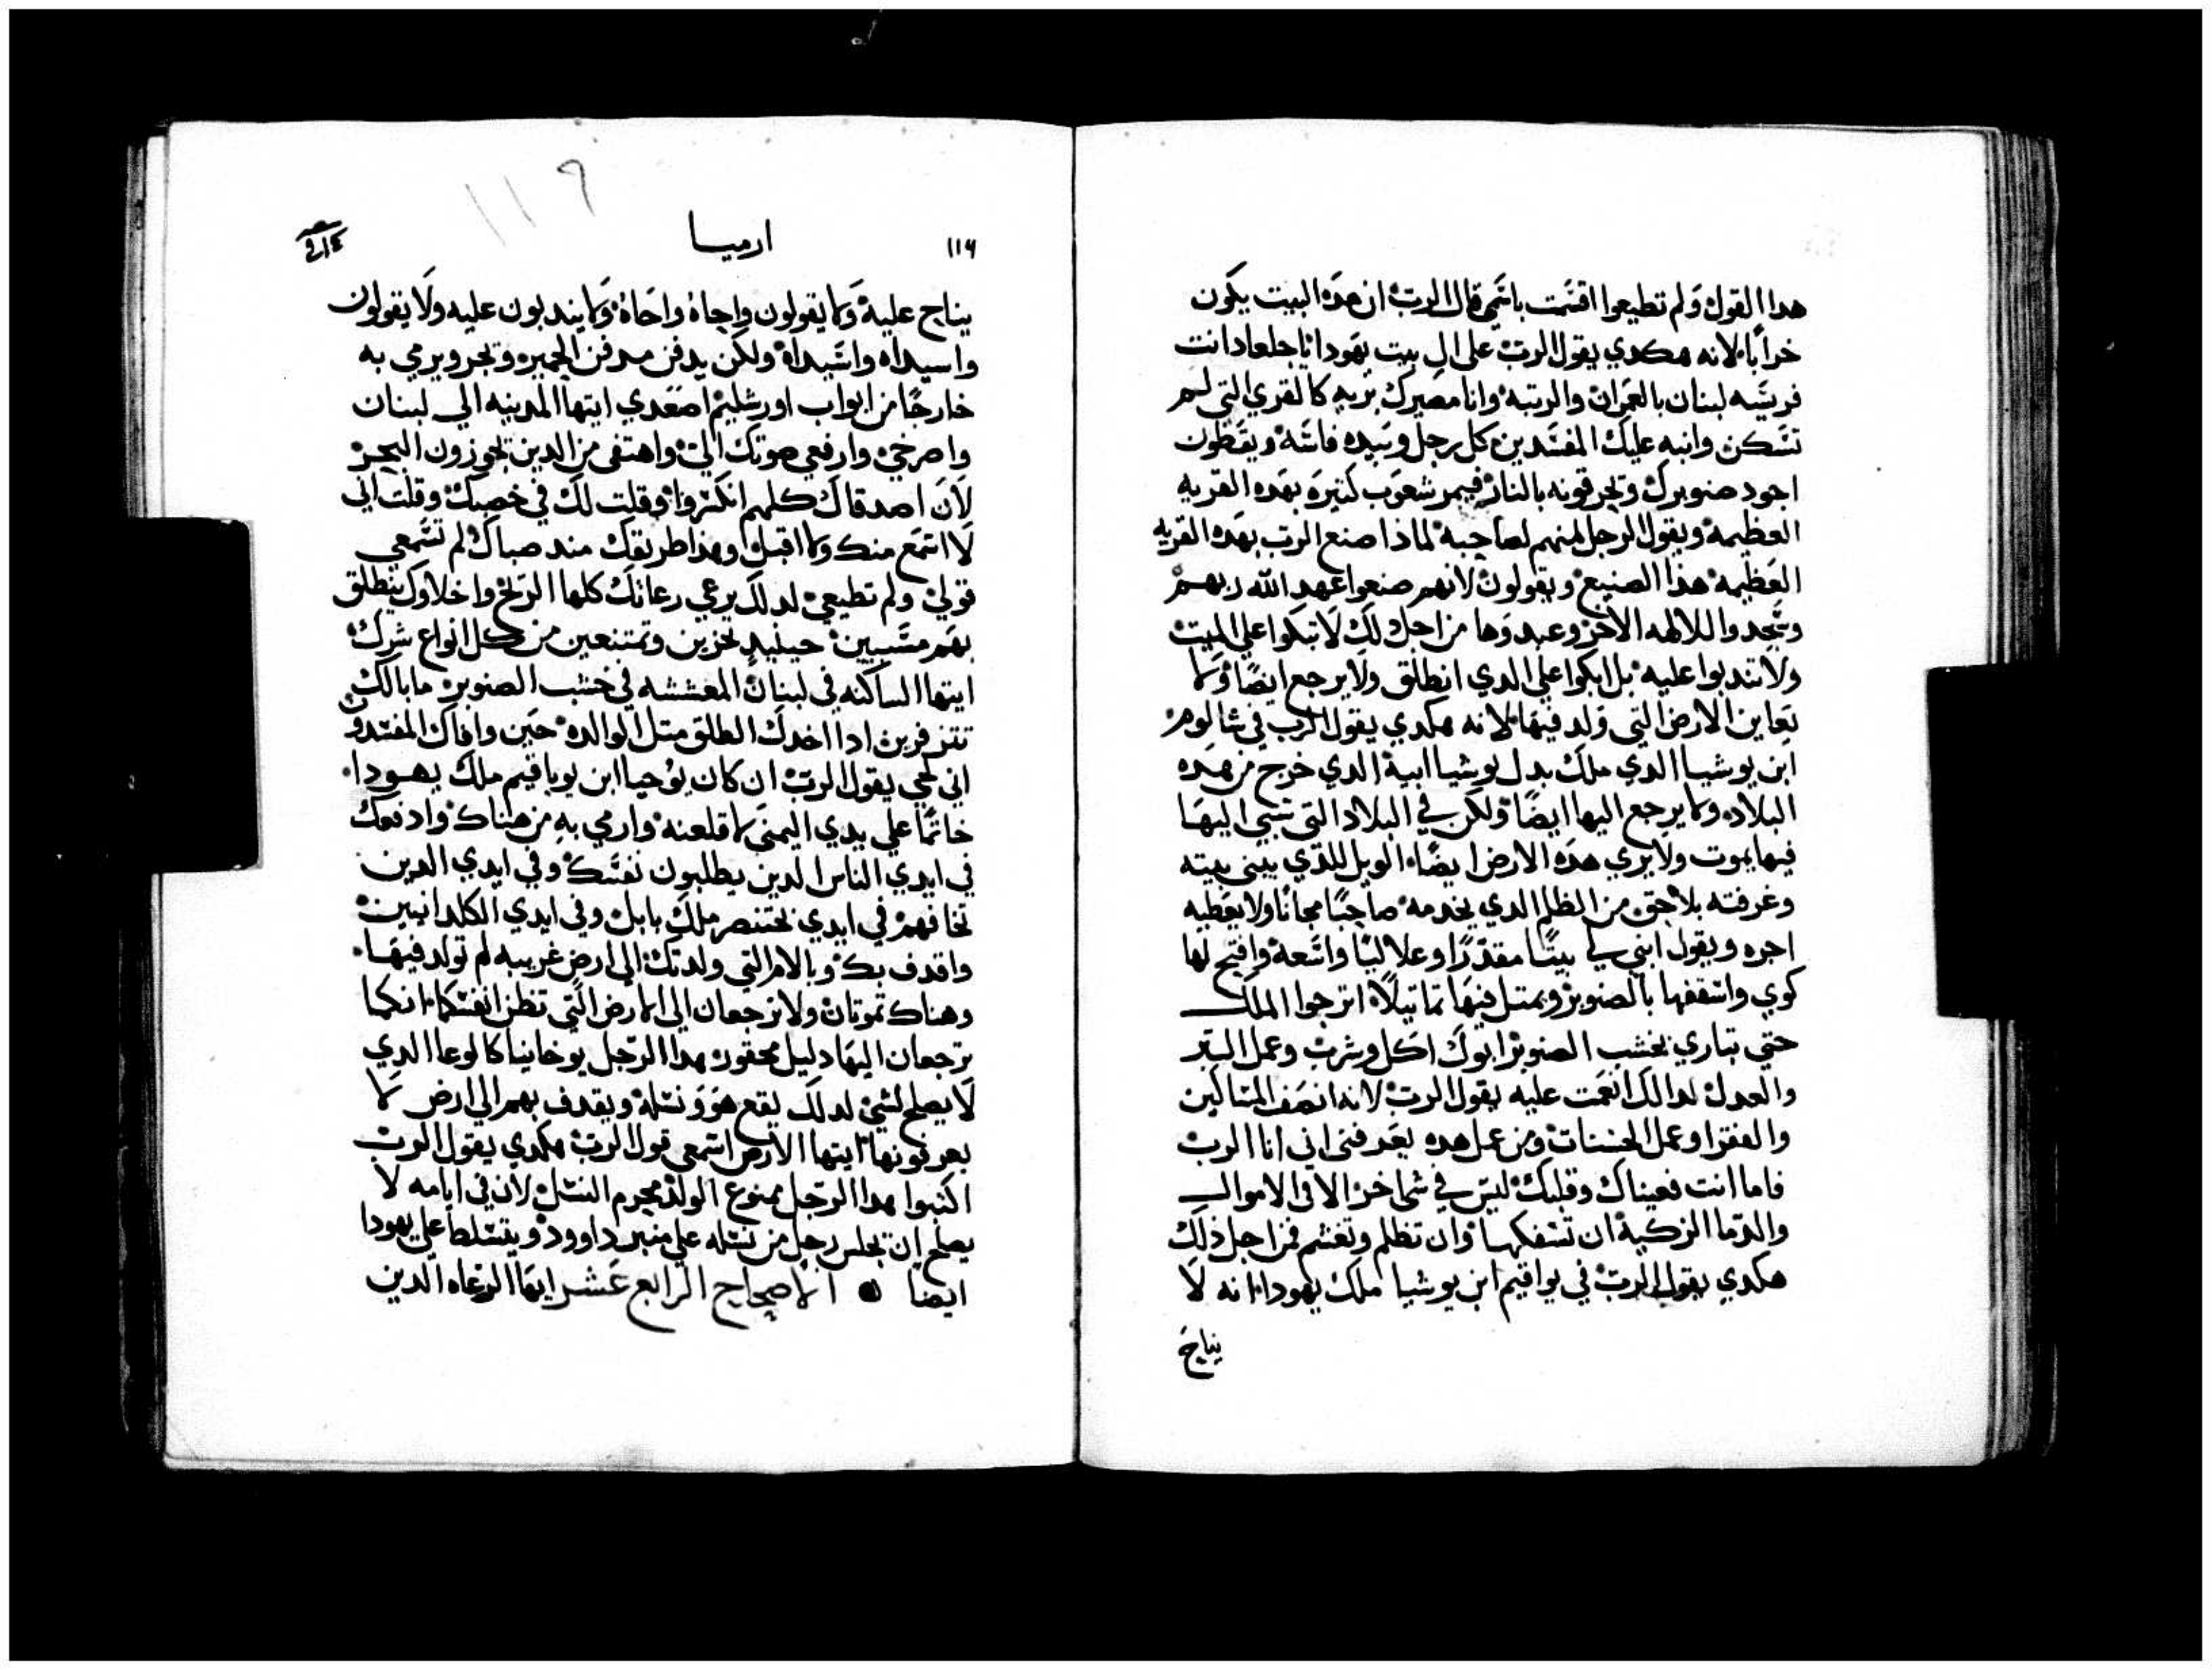 هدا القول ولم تطيعوا اقسمت باسمي قال الرب ان هده البيت يكون
خرابا لانه هكدي يقول الرب على ال بيت يهودا يا جلعاد انت
فريسه لبنان بالعمران والرتبه وانا مصيرك بريه كالقري التي لم
تسكن وانبه عليك المفسدين كل رجل وبيده فاسه ويقطون
اجود صنوبرك وتحرقونه بالنار فيمر شعوب كتيره بهده القريه
العظيمه ويقول الرجل منهم لصاحبه لماذا صنع الرب بهده القريه
العظيمه هذا الصنيع ويقولون لانهم صنعوا عهد الله ربهم
وسجدوا للالهه الاخر وعبدوها من اجل دلك لا تبكوا علي الميت
ولا تندبوا عليه بل ابكوا علي الدي انطلق ولا يرجع ايضا ولا
يعاين الارض التي ولد فيها لانه هكدي يقول الرب في شالوم
ابن يوشيا الدي ملك بدل يوشيا ابيه الدي خرج من هده
البلاده ولا يرجع اليها ايضا ولكن في البلاد التي سبي اليها
فيها يموت ولا يري هده الارض ايضا الويل للذي يبني بيته
وغرفته بلا حق من الظلم الدي يخدمه صاحبا مجانا ولا يعطيه
اجره ويقول ابني لي بيتا مقدرا وعلاليا واسعه وافتح لها
كوي واسقفها بالصنوبر ويمتل فيها تماتيلا اترجوا الملك
حتي تباري بخشب الصنوبر ابوك اكل وشرب وعمل البر
والعدل لدالك انعمت عليه يقول الرب لانه انصف المساكين
والفقرا وعمل الحسنات ومن عمل هده يعرفني اني انا الرب
فاما انت فعيناك وقلبك ليس في شي اخر الا في الاموال
والدما الزكية ان تسفكها وان تظلم وتغشم فمن اجل ذلك
هكدي يقول الرب في يواقيم ابن يوشيا ملك يهودا انه لا
يناح
١١٩
١١٦ ارميا
يناح عليه ولا يقولون واجاه واحاه ولا يندبون عليه ولا يقولون
واسيداه واسيداه ولكن يدفن مدفن الحمير وتجر ويرمي به
خارجا من ابواب اورشليم اصعدي ايتها المدينه الي لبنان
واصرخي وارفعي صوتك الي واهتفي من الدين يجوزون البحر
لان اصدقاك كلهم انكسروا وقلت لك في خصبك وقلت اني
لا استمع منك ولا اقبل وهذا طريقك مند صباك لم تسمعي
قولي ولم تطيعي لدلك يرعي رعاتك كلها الريح واخلاوك ينطلق
بهم مسبيين حينيد تخزين وتمتنعين من كل انواع شرك
ايتها الساكنه في لبنان المعششه في خشب الصنوبر ما بالك
تتزفرين ادا اخدك الطلق متل الوالده حين وافاك المفسدون
اني لحي يقول الرب ان كان يوحيا ابن يوياقيم ملك يهودا
خاتما علي يدي اليمني لاقلعنه وارمي به من هناك وادفعك
في ايدي الناس الدين يطلبون نفسك وفي ايدي الدين
تخافهم في ايدي بختنصر ملك بابل وفي ايدي الكلدانيين
واقدف بك وبالام التي ولدتك الي ارض غريبه لم تولد فيها
وهناك تموتان ولا ترجعان الي الارض التي تظن انفسكما انكما
ترجعان اليها دليل محقور هدا الرجل يوخانيا كالوعا الدي
لا يصلح لشي لدلك يقع هو ونسله ويقدف بهم الي ارض لا
يعرفونها ايتها الارض اسمعي قول الرب هكدي يقول الرب
اكتبوا هدا الرجل ممنوع الولد مجرم النسل لان في ايامه لا
يصلح ان تجلس رجل من نسله علي منبر داوود ويتسلط علي يهودا
ايضا الاصحاح الرابع عشر ايها الرعاه الدين